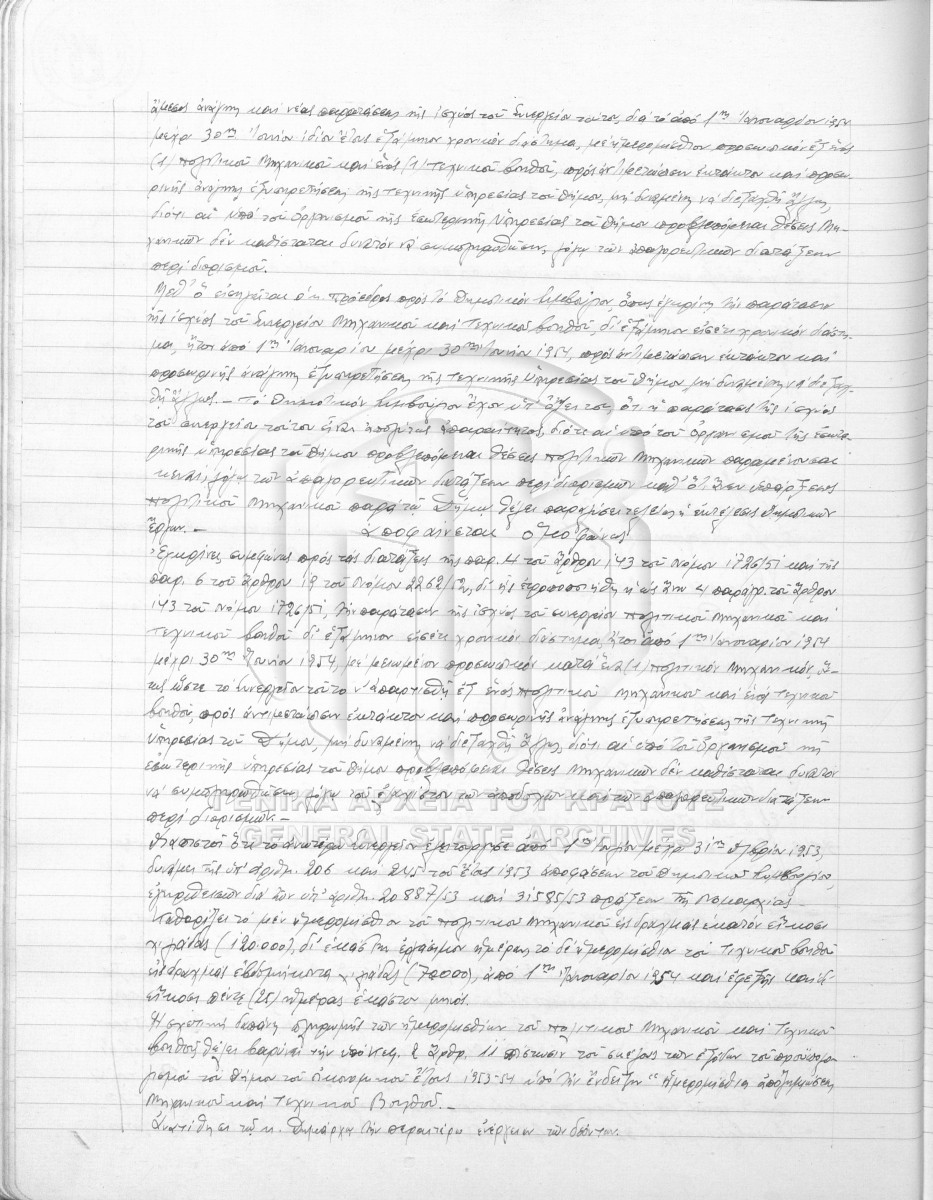 ἄμεσος ἀνάγκη καὶ νέας παρατάσεως τῆς ἰσχύος τοῦ Συνεργείου τούτου, διὰ τὸ ἀπὸ 1ης Ἰανουαρίου 1954
μέχρι 30ης Ἰουνίου ἰδίου ἔτους ἑξάμηνον χρονικὸν διάστημα, μὲ ἡμερομίσθιον προσωπικὸν ἐξ ἑνὸς
(1) Πολιτικοῦ Μηχανικοῦ καὶ ἑνὸς (1) Τεχνικοῦ βοηθοῦ, πρὸς ἀντιμετώπισιν ἐκτάκτου καὶ προσω-
ρινῆς ἀνάγκης ἐξυπηρετήσεως τῆς τεχνικῆς ὑπηρεσίας τοῦ Δήμου, μὴ δυναμένης νὰ διεξαχθῇ ἄλλως,
διότι αἱ ὑπὸ τοῦ Ὀργανισμοῦ τῆς Ἐσωτερικῆς Ὑπηρεσίας τοῦ Δήμου προβλεπόμεναι θέσεις Μη-
χανικῶν δὲν καθίσταται δυνατὸν νὰ συμπληρωθῶσιν, λόγῳ τῶν ἀπαγορευτικῶν διατάξεων
περὶ διορισμοῦ.
Μεθ' ὃ εἰσηγεῖται ὁ κ. Πρόεδρος πρὸς τὸ Δημοτικὸν Συμβούλιον, ὅπως ἐγκρίνῃ τὴν παράτασιν
τῆς ἰσχύος τοῦ Συνεργείου Μηχανικοῦ καὶ Τεχνικοῦ βοηθοῦ δι' ἑξάμηνον εἰσέτι χρονικὸν διάστη-
μα, ἤτοι ἀπὸ 1ης Ἰανουαρίου μέχρι 30ης Ἰουνίου 1954, πρὸς ἀντιμετώπισιν ἐκτάκτου καὶ
προσωρινῆς ἀνάγκης ἐξυπηρετήσεως τῆς τεχνικῆς ὑπηρεσίας τοῦ Δήμου, μὴ δυναμένης νὰ διεξαχ-
θῇ ἄλλως.— Τὸ Δημοτικὸν Συμβούλιον ἔχον ὑπ' ὄψει του, ὅτι ἡ παράτασις τῆς ἰσχύος
τοῦ συνεργείου τούτου εἶναι ἀπολύτως ἀπαραίτητος, διότι αἱ ὑπὸ τοῦ Ὀργανισμοῦ τῆς ἐσωτε-
ρικῆς ὑπηρεσίας τοῦ Δήμου προβλεπόμεναι θέσεις πολιτικῶν Μηχανικῶν παραμένουσαι
κεναί, λόγῳ τῶν ἀπαγορευτικῶν διατάξεων περὶ διορισμῶν καθ' ὅτι ἄνευ ὑπάρξεως
πολιτικοῦ Μηχανικοῦ παρὰ τῷ Δήμῳ θέλει παραλύσει τελείως ἡ ἐκτέλεσις δημοτικῶν
ἔργων.— Ἀποφαίνεται ὁμοφώνως
Ἐγκρίνει, συμφώνως πρὸς τὰς διατάξεις τῆς παρ. 4 τοῦ ἄρθρου 143 τοῦ Νόμου 1726/51 καὶ τῆς
παρ. 6 τοῦ ἄρθρου 19 τοῦ Νόμου 2262/52, δι' ἧς ἐτροποποιήθη ἡ ὡς ἄνω 4 παράγρ. τοῦ ἄρθρου
143 τοῦ Νόμου 1726/51, τὴν παράτασιν τῆς ἰσχύος τοῦ συνεργείου πολιτικοῦ Μηχανικοῦ καὶ
τεχνικοῦ βοηθοῦ δι' ἑξάμηνον εἰσέτι χρονικὸν διάστημα, ἤτοι ἀπὸ 1ης Ἰανουαρίου 1954
μέχρι 30ης Ἰουνίου 1954, μὲ μειωμένον προσωπικὸν κατὰ ἕνα (1) πολιτικὸν Μηχανικόν, οὕ-
τως ὥστε τὸ συνεργεῖον τοῦτο ν' ἀπαρτισθῇ ἐξ ἑνὸς πολιτικοῦ Μηχανικοῦ καὶ ἑνὸς τεχνικοῦ
βοηθοῦ, πρὸς ἀντιμετώπισιν ἐκτάκτου καὶ προσωρινῆς ἀνάγκης ἐξυπηρετήσεως τῆς τεχνικῆς
ὑπηρεσίας τοῦ Δήμου, μὴ δυναμένης νὰ διεξαχθῇ ἄλλως, διότι αἱ ὑπὸ τοῦ Ὀργανισμοῦ τῆς
ἐσωτερικῆς ὑπηρεσίας τοῦ Δήμου προβλεπόμεναι θέσεις Μηχανικῶν δὲν καθίσταται δυνατὸν
νὰ συμπληρωθῶσιν, λόγῳ τοῦ τῶν ἀποδοχῶν καὶ τῶν ἀπαγορευτικῶν διατάξεων
περὶ διορισμῶν.—
ΓΕΝΙΚΑ ΑΡΧΕΙΑ ΤΟΥ ΚΡΑΤΟΥΣ
GENERAL STATE ARCHIVES
ὅτι τὸ ἀνωτέρω συνεργεῖον ἐλειτούργησε ἀπὸ 1ης μέχρι 31ης Δ/βρίου 1953,
δυνάμει τῆς ὑπ' ἀριθμ. 206 καὶ 245 τοῦ ἔτους 1953 ἀποφάσεων τοῦ Δημοτικοῦ Συμβουλίου,
ἐγκριθεισῶν διὰ τῶν ὑπ' ἀριθμ. 20887/53 καὶ 31585/53 πράξεων τῆς Νομαρχίας.—
Καθορίζει τὸ μὲν ἡμερομίσθιον τοῦ πολιτικοῦ Μηχανικοῦ εἰς δραχμὰς ἑκατὸν εἴκοσι
χιλιάδας (120.000), δι' ἑκάστην ἐργάσιμον ἡμέραν, τὸ δὲ ἡμερομίσθιον τοῦ τεχνικοῦ βοηθοῦ
εἰς δραχμὰς ἑβδομήκοντα χιλιάδας (70000), ἀπὸ 1ης Ἰανουαρίου 1954 καὶ ἐφεξῆς καὶ δι'
εἴκοσι πέντε (25) ἡμέρας ἑκάστου μηνός.
Ἡ σχετικὴ δαπάνη πληρωμῆς τῶν ἡμερομισθίων τοῦ πολιτικοῦ Μηχανικοῦ καὶ τεχνικοῦ
βοηθοῦ, θέλει βαρύνει τὴν ὑπὸ Κεφ. ἄρθρ. 11 πίστωσιν τοῦ σκέλους τῶν ἐξόδων τοῦ προϋπολο-
γισμοῦ τοῦ Δήμου τοῦ οἰκονομικοῦ ἔτους 1953-54 ὑπὸ τὴν ἔνδειξιν "Ἡμερομίσθια ἀποζημιώσεως
Μηχανικοῦ καὶ τεχνικοῦ Βοηθοῦ.—
Ἀνατίθησι τῷ κ. Δημάρχῳ τὴν περαιτέρω ἐνέργειαν τῶν δεόντων.